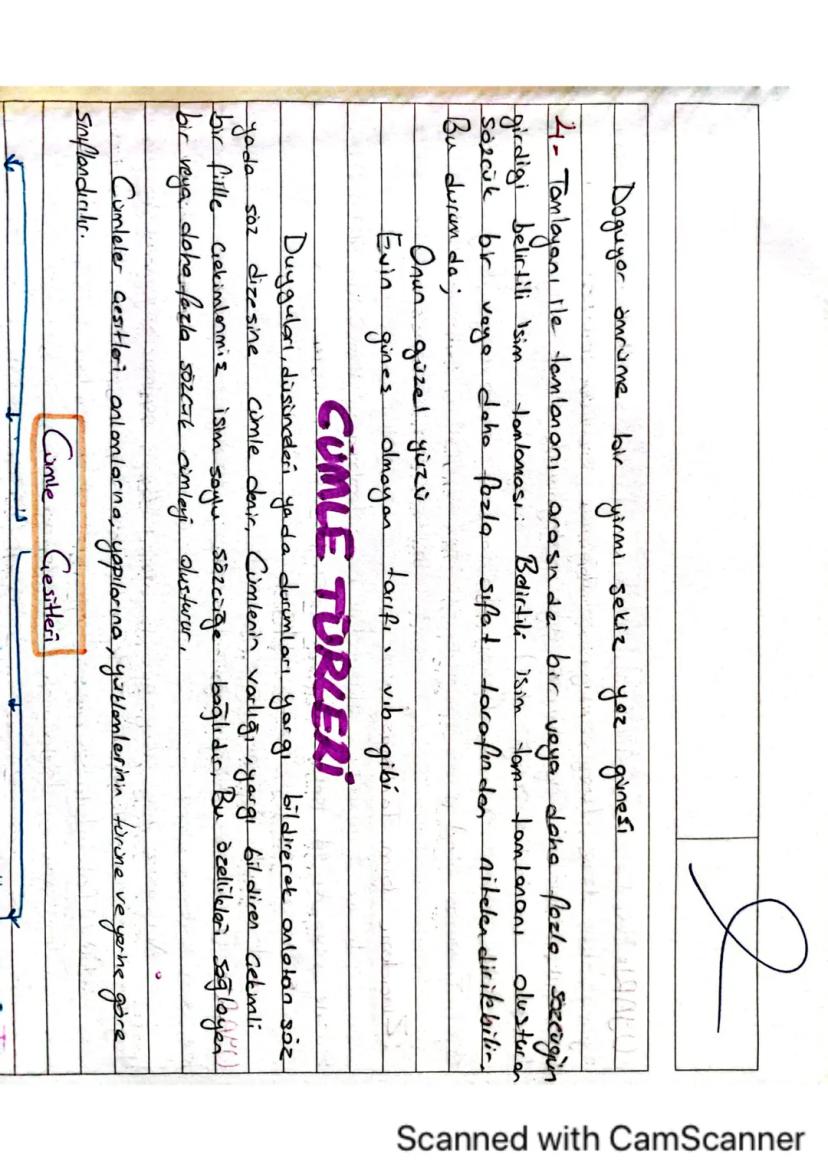 Doguyor ömrüme bir yirmi sekiz yaz günesi
4- Tamlayanı ile tamlananı arasında bir veya daha fazla sözcügün
girdigi belirtili isim tamlaması: Belirtili isim tamı tamlananı olusturan
sözcük bir veya daha fazla sıfat tarafından nitelendirilebilir.
Bu durumda;
Onun güzel yüzü
Evin gines olmayan tarafı, vib gibi
CÜMLE TÜRLERİ
Duyguları, düsünceleri yada durumları yargı bildirerek anlatan söz
yada söz dizesine cümle denir. Cümlenin varlıgı, yargı bildiren cekimli
bir fiille cekimlenmis isim soylu sözcüge baglıdır. Bu özellikleri saglayan
bir veya daha fazla sözcük cümleyi olusturur.
Cümleler cesitleri anlamlarına, yapılarına, yüklemlerinin türüne ve yerine göre
sınıflandırılır.
Cümle Cesitleri
Scanned with CamScanner